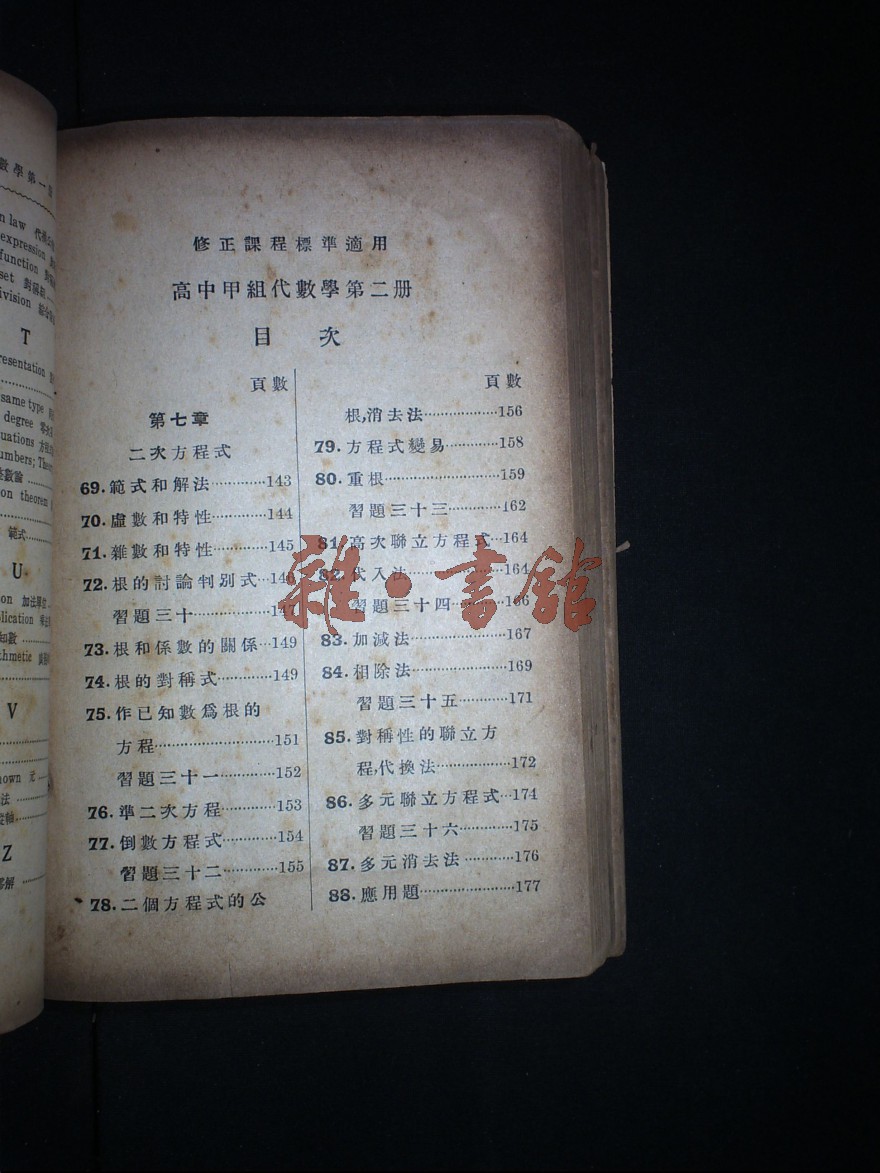 數學第一
n law
expression
function
set 對稱
ivision 綜合
T
resentation
same type
degree
uations 方程
umbers; Theo
整數論
on theorem
範式
U
on 加法單
lication 乘
知數
thmetic
V
nown 元
法
縱軸
Z
解
修正課程標準適用
高中甲組代數學第二册
目 次
頁數
第七章
二次方程式
69.範式和解法············143
70.虛數和特性············144
71.雜數和特性············145
72.根的討論判別式···146
習題三十············147
73.根和係數的關係···149
74.根的對稱式·········149
75.作已知數爲根的
方程························151
習題三十一············152
76.準二次方程············153
77.倒數方程式············154
習題三十二············155
78.二個方程式的公
頁數
根,消去法···············156
79.方程式變易············158
80.重根·····················159
習題三十三············162
81.高次聯立方程式···164
82.代入法··················164
習題三十四············166
83.加減法··················167
84.相除法··················169
習題三十五············171
85.對稱性的聯立方
程,代換法···············172
86.多元聯立方程式···174
習題三十六············175
87.多元消去法············176
88.應用題··················177
雜·書館